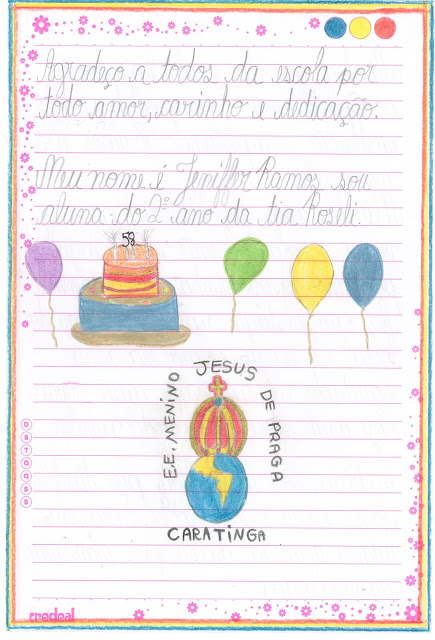 Agradeço a todos da escola por
todo amor, carinho e dedicação.
Meu nome é Jeniffer Ramos sou
aluna do 2º ano da tia Roseli.
58
E.E. MENINO JESUS DE PRAGA
CARATINGA
D
S
T
Q
Q
S
S
credeal